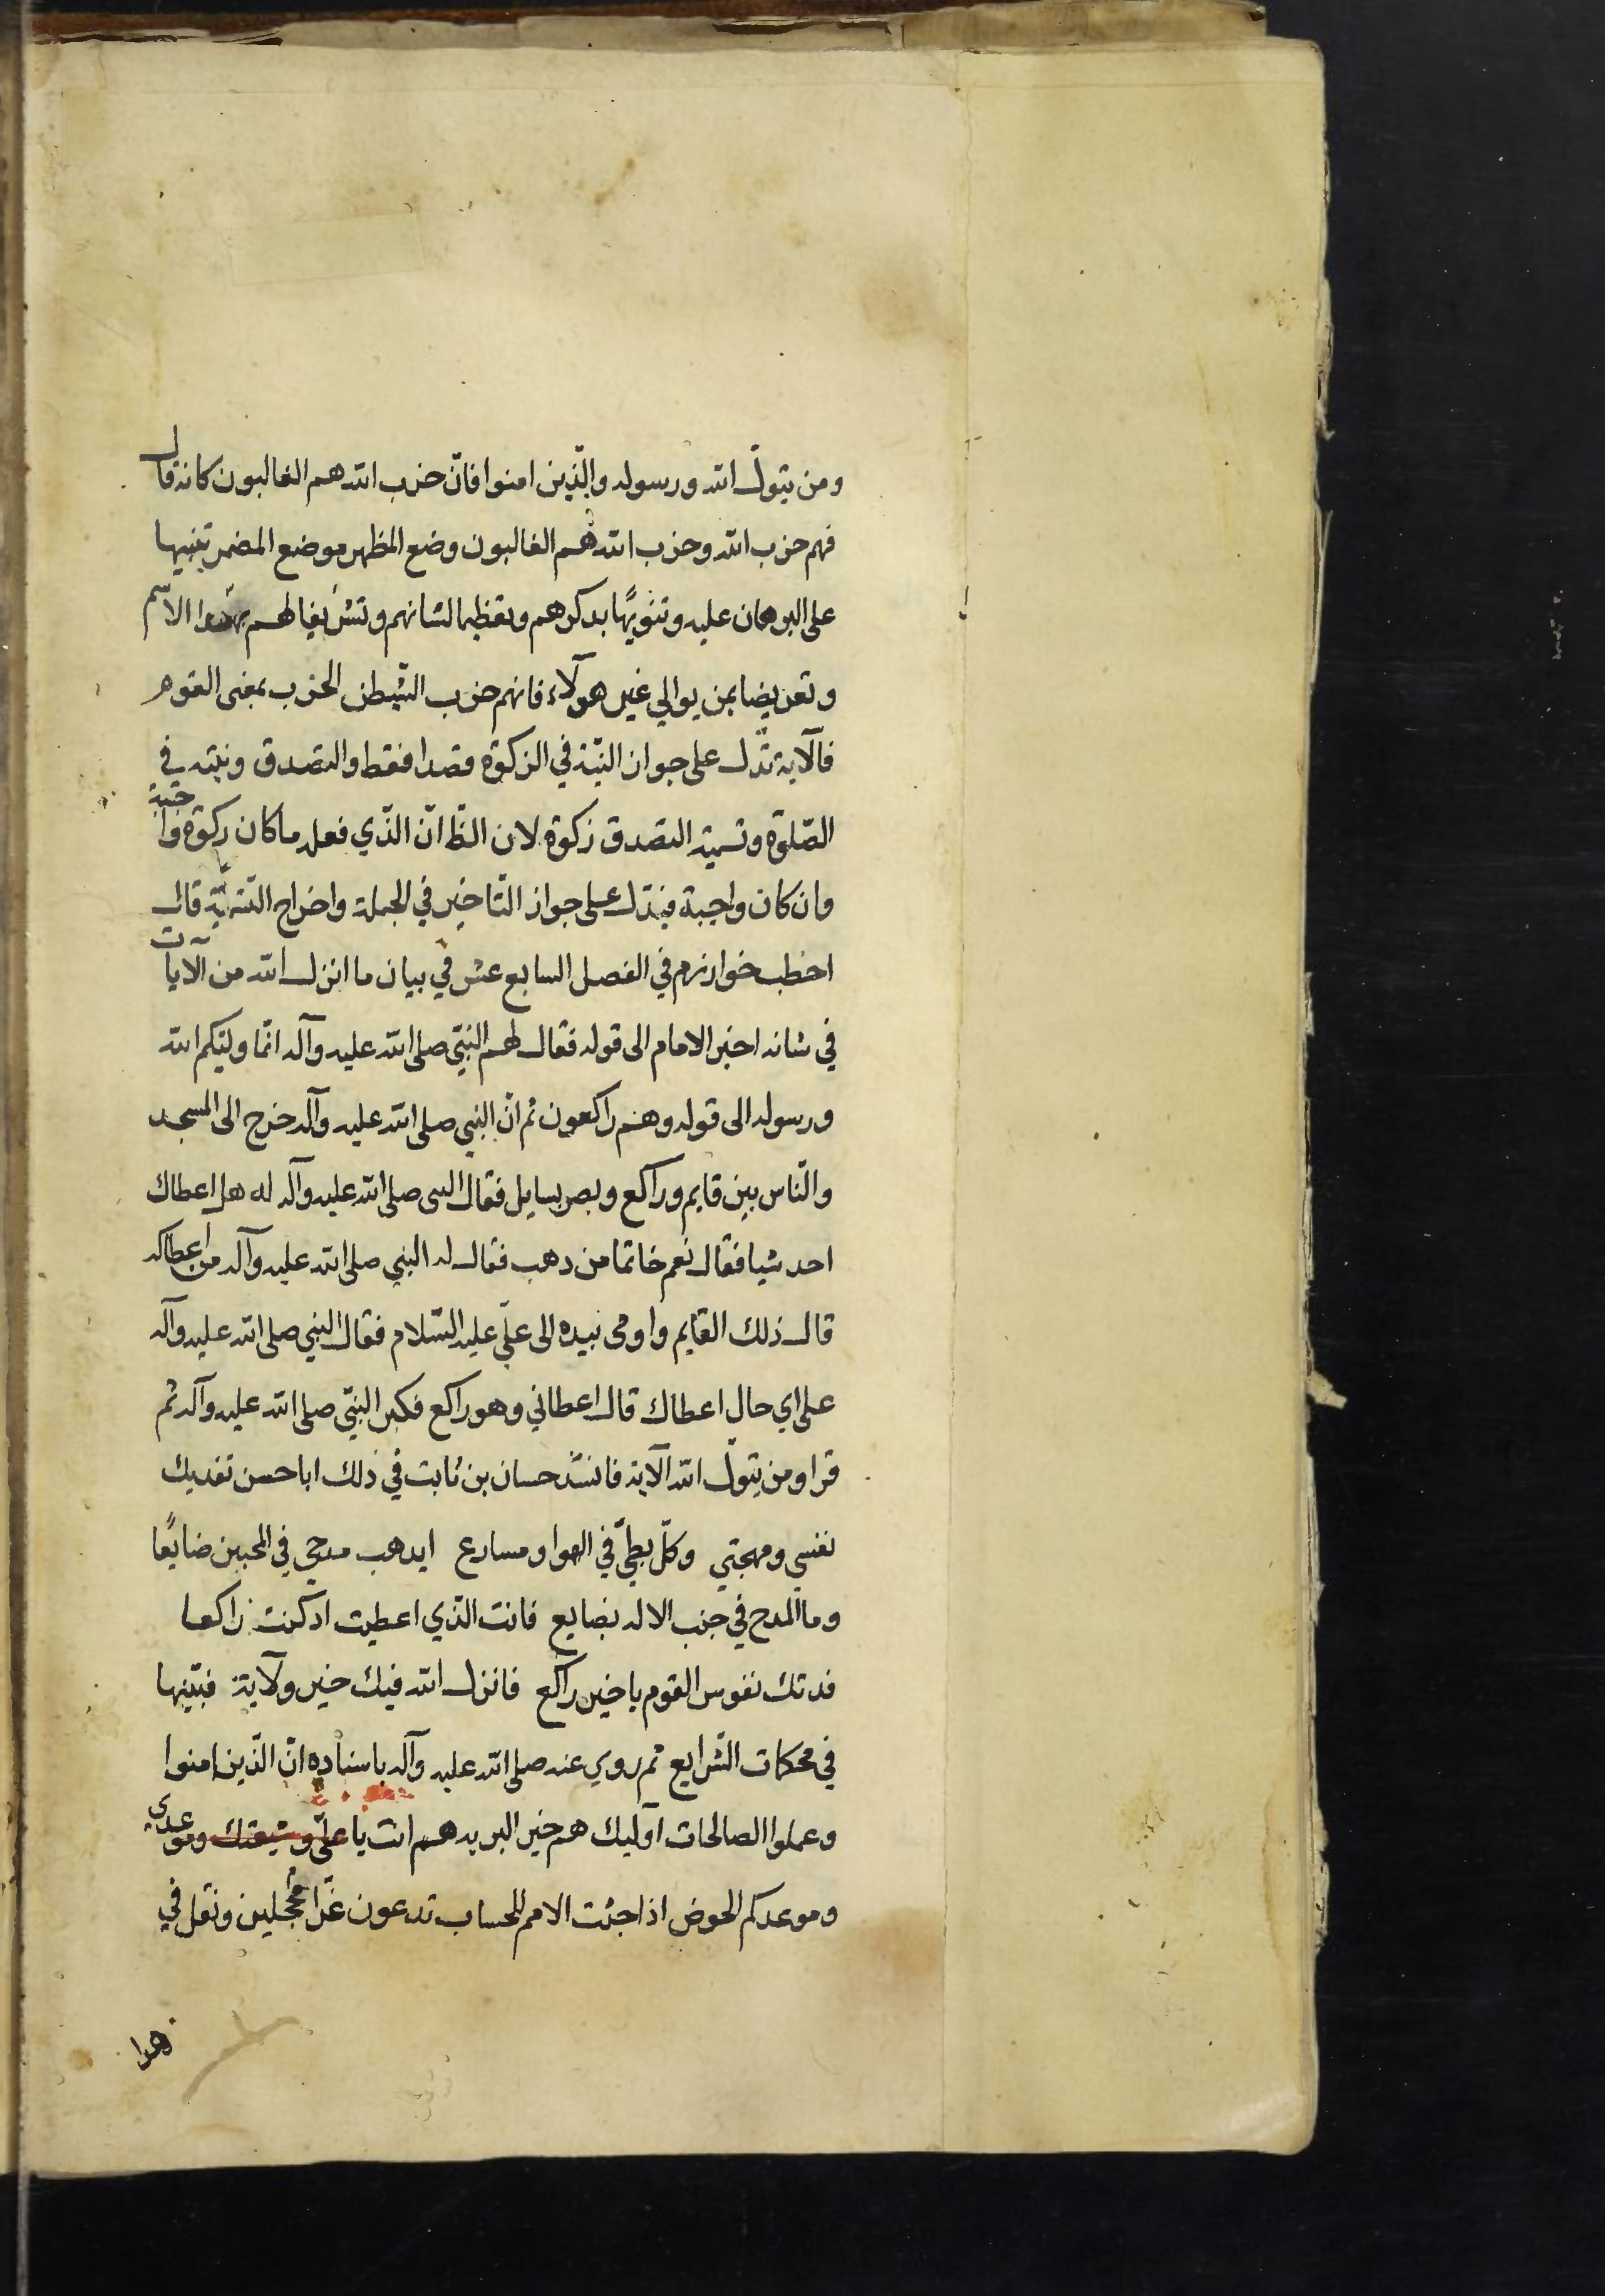 ومن يتولّ الله ورسوله والّذين امنوا فانّ حزب الله هم الغالبون كانه قال
فهم حزب الله وحزب الله هم الغالبون وضع المظهر موضع المضمر تنبيها
على البرهان عليه وتنويهًا بذكرهم وتعظيما لشانهم وتشريفا لهم بهذا الاسم
وتعريضا بمن يوالي غير هولآء فانهم حزب الشيطن الحزب بمعنى القوم
فالآية تدّل على جواز النيّة في الزكوة قصدا فقط والتصدق ونيته في
الصّلوة وتسمية التصدق زكوة لان الظ انّ الذّي فعله ما كان زكوة واجبة
وان كان واجبة فيدّل على جواز التّاخير في الجملة واخراج القيمة قال
اخطب خوارزم في الفصل السابع عشر في بيان ما انزل الله من الآيات
في شانه اخبر الامام الى قوله فقال لهم النبّي صلى الله عليه وآله انمّا وليّكم الله
ورسوله الى قوله وهم راكعون ثم انّ النبي صلى الله عليه وآله خرج الى المسجد
والنّاس بين قايم وراكع وبصر بسايل فقال النبى صلى الله عليه وآله له هل اعطاك
احد شيا فقال نعم خاتما من ذهب فقال له النبي صلى الله عليه وآله من اعطاكه
قال ذلك القايم واومى بيده الى عليّ عليه السّلام فقال النبي صلى الله عليه وآله
على اي حال اعطاك قال اعطاني وهو راكع فكبر النبّي صلى الله عليه وآله ثم
قرا ومن يتولّ الله الآية فانشد حسان بن ثابت في ذلك ابا حسن تفديك
نفسي ومهجتي وكلّ بطيّ في الهوا ومسارع ايذهب مدحي في المحبين ضايعًا
وما المدح في جنب الاله بضايع فانت الذّي اعطيت اذ كنت راكعا
فدتك نفوس القوم يا خير راكع فانزل الله فيك خير ولآية فبيّنها
في محكمات الشّرايع ثم روي عنه صلى الله عليه وآله باسناده انّ الّذين امنوا
وعملوا الصالحات آوليك هم خير البريه هم انت يا عليّ وشيعتك وموعدي
وموعدكم الحوض اذا جئت الامم للحساب تدعون غرّا محُجلين ونقل في
هذا